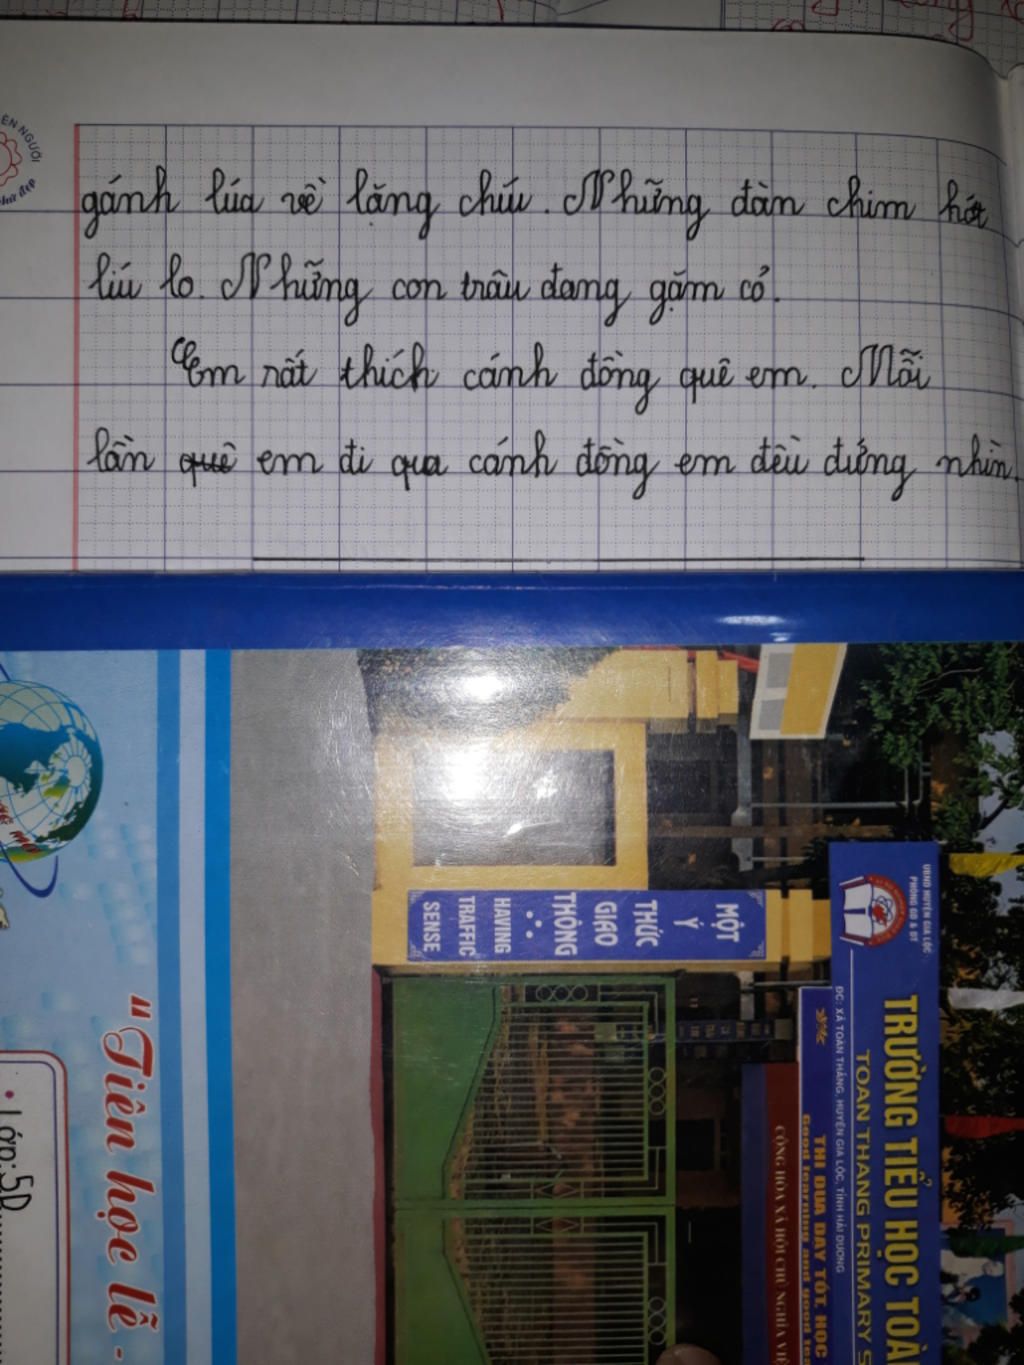 ÊN NGƯỜI
chữ đẹp
gánh lúa về lặng chíu. Những đàn chim hót
líu lo. Những con trâu đang gặm cỏ.
Em rất thích cánh đồng quê em. Mỗi
lần quê em đi qua cánh đồng em đều đứng nhìn.
MỘT
Ý
THỨC
GIAO
THÔNG
HAVING
TRAFFIC
SENSE
UBND HUYỆN GIA LỘC
PHÒNG GD & ĐT
TRƯỜNG TIỂU HỌC TOÀ
TOAN THANG PRIMARY S
ĐC: XÃ TOÀN THẮNG, HUYỆN GIA LỘC, TỈNH HẢI DƯƠNG
THI ĐUA DẠY TỐT, HỌC
Good learning and good tea
CỘNG HÒA XÃ HỘI CHỦ NGHĨA VIỆ
"Tiên học lễ -
• Lớp: 5D